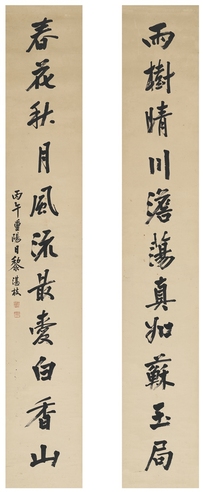 雨樹晴川澹蕩真如蘇玉局
春花秋月風流最愛白香山
丙午重陽日黎湛枝